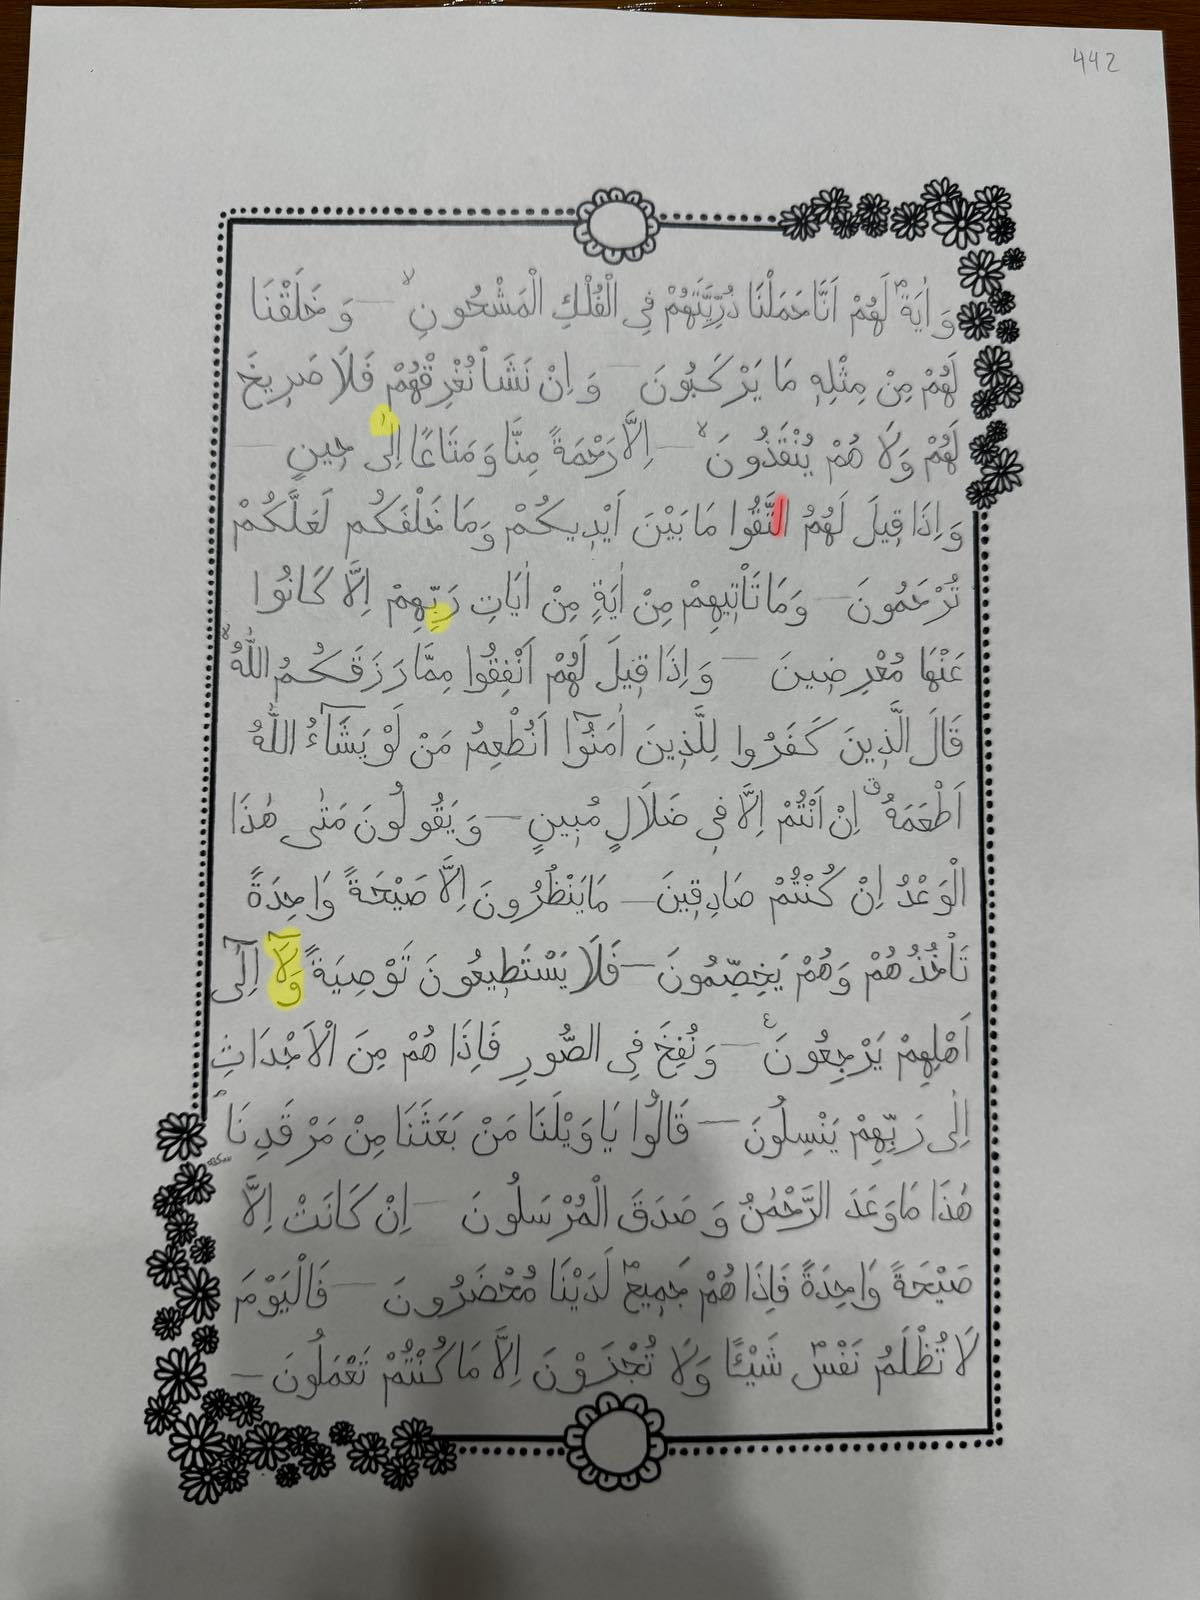 442
وَ اٰيَةٌ لَهُمْ اَنَّا حَمَلْنَا ذُرِّيَّتَهُمْ فِي الْفُلْكِ الْمَشْحُونِۙ — وَ خَلَقْنَا
لَهُمْ مِنْ مِثْلِهٖ مَا يَرْكَبُونَ — وَ اِنْ نَشَأْ نُغْرِقْهُمْ فَلَا صَرٖيخَ
لَهُمْ وَلَا هُمْ يُنْقَذُونَۙ — اِلَّا رَحْمَةً مِنَّا وَ مَتَاعًا اِلٰى حٖينٍ —
وَ اِذَا قٖيلَ لَهُمُ اتَّقُوا مَا بَيْنَ اَيْدٖيكُمْ وَمَا خَلْفَكُم لَعَلَّكُمْ
تُرْحَمُونَ — وَمَا تَأْتٖيهِمْ مِنْ اٰيَةٍ مِنْ اٰيَاتِ رَبِّهِمْ اِلَّا كَانُوا
عَنْهَا مُعْرِضٖينَ — وَ اِذَا قٖيلَ لَهُمْ اَنْفِقُوا مِمَّا رَزَقَكُمُ اللّٰهُۙ
قَالَ الَّذٖينَ كَفَرُوا لِلَّذٖينَ اٰمَنُٓوا اَنُطْعِمُ مَنْ لَوْ يَشَٓاءُ اللّٰهُ
اَطْعَمَهُۗ اِنْ اَنْتُمْ اِلَّا فٖي ضَلَالٍ مُبٖينٍ — وَ يَقُولُونَ مَتٰى هٰذَا
الْوَعْدُ اِنْ كُنْتُمْ صَادِقٖينَ — مَا يَنْظُرُونَ اِلَّا صَيْحَةً وَاحِدَةً
تَأْخُذُهُمْ وَهُمْ يَخِصِّمُونَ — فَلَا يَسْتَطٖيعُونَ تَوْصِيَةً وَلَٓا اِلٰٓى
اَهْلِهِمْ يَرْجِعُونَ ع — وَ نُفِخَ فِي الصُّورِ فَاِذَا هُمْ مِنَ الْاَجْدَاثِ
اِلٰى رَبِّهِمْ يَنْسِلُونَ — قَالُوا يَا وَيْلَنَا مَنْ بَعَثَنَا مِنْ مَرْقَدِنَاۢ سكته
هٰذَا مَا وَعَدَ الرَّحْمٰنُ وَ صَدَقَ الْمُرْسَلُونَ — اِنْ كَانَتْ اِلَّا
صَيْحَةً وَاحِدَةً فَاِذَا هُمْ جَمٖيعٌ لَدَيْنَا مُحْضَرُونَ — فَالْيَوْمَ
لَا تُظْلَمُ نَفْسٌ شَيْـًٔا وَلَا تُجْزَوْنَ اِلَّا مَا كُنْتُمْ تَعْمَلُونَ —